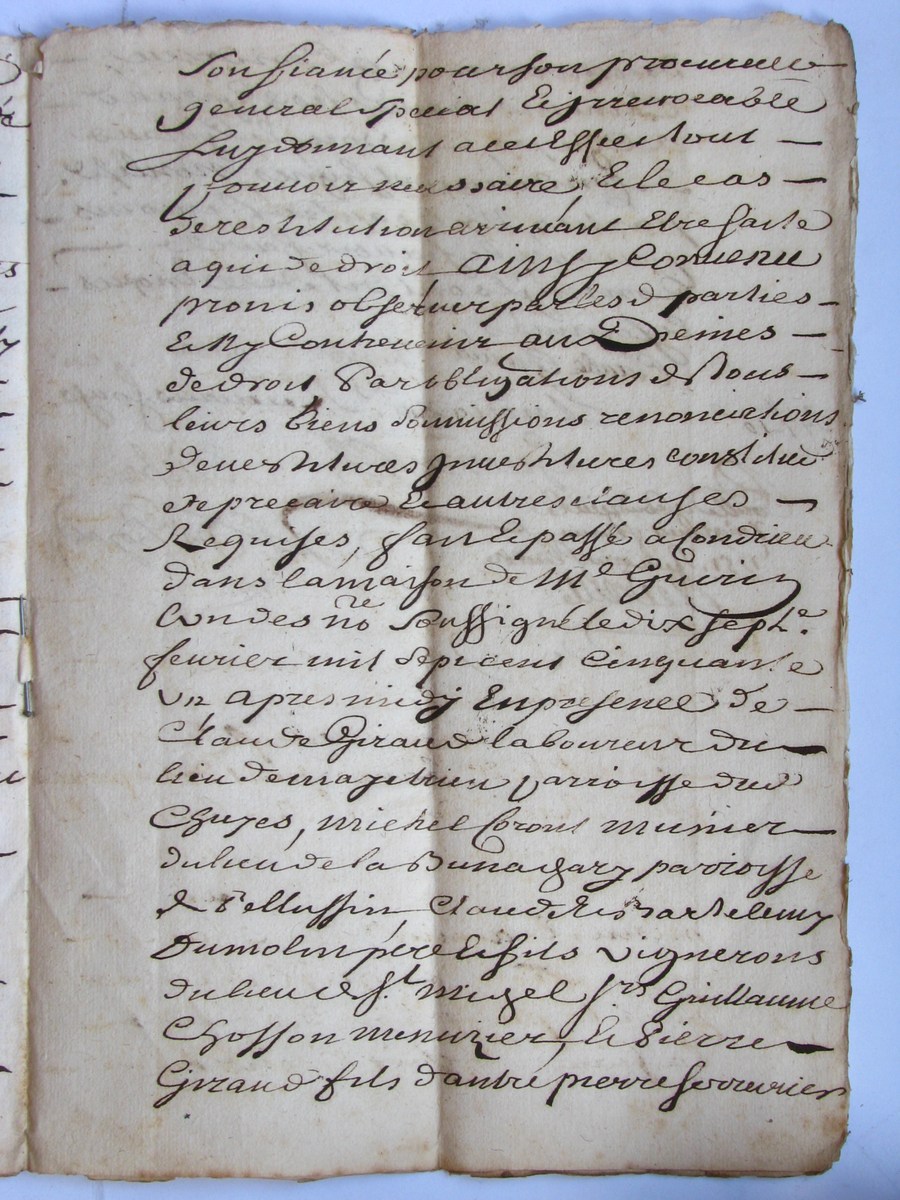 son fiancé pour son procureur
general special & jrrevocable
Luy donnant a cet Effet tout
pouvoir necessaire, Et le cas
de restitution arrivant Etre faite
a qui de droit Ainsy Convenu
promis observer par les d parties
Et Ny Contrevenir aux Peines
de droit Par obligations de tous
leurs biens soumissions renonciations
devestitures jnvestitures constitud
de precaire Et autres clauses
Requises, fait Et passé a Condrieu
dans la maison de Me Guerin
L'un des nore soussigné le dix sept.e
fevrier mil sept cent Cinquante
un apres midy En presence de
Claude Giraud laboureur du
lieu de parroisse dud
Chuyes, Michel Coront munier
du lieu de la parroisse
de Pellussin, Claude Et Bartelemy
Dumolin père Et fils vignerons
du lieu de St Migel Srs Guillaume
Chosson menuizier, Et Pierre
Giraud fils d'autre pierre serrurier